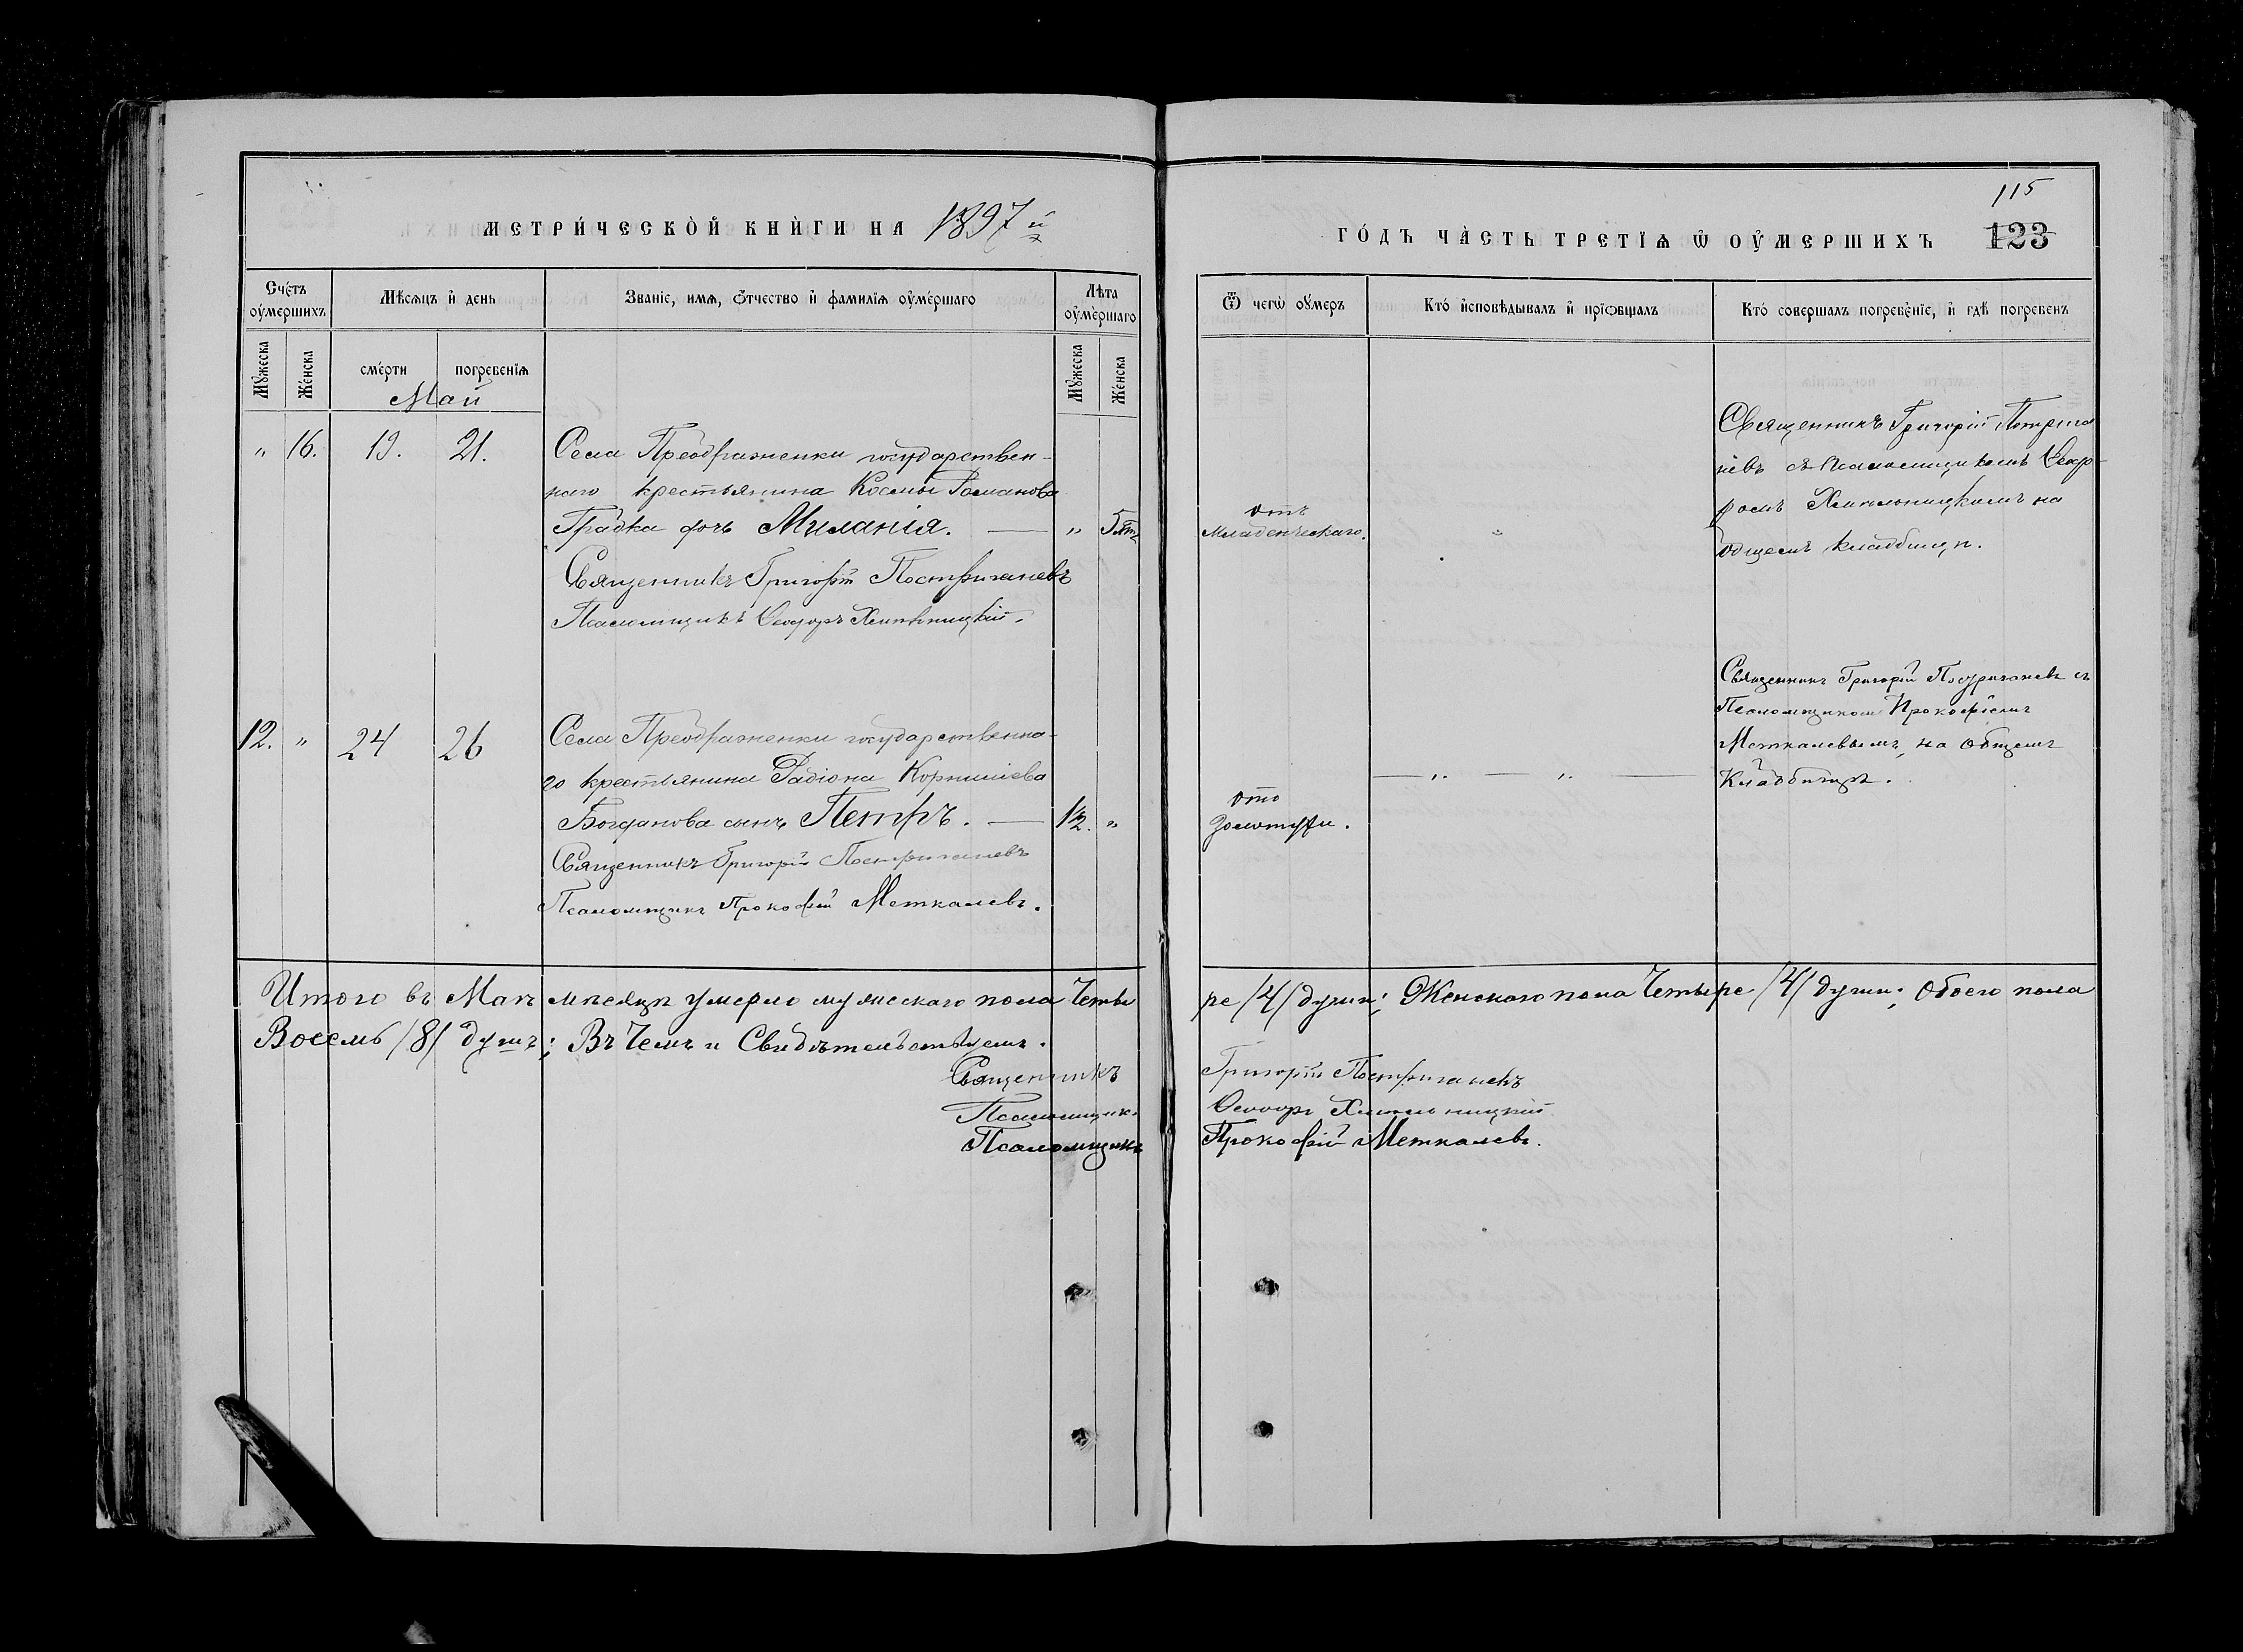 МЕТРИ́ЧЕСКОЙ КНИ́ГИ НА 1897 й
ГО́ДЪ ЧА́СТЬ ТРЕТІѦ Ѡ ОУ҆МЕРШИХЪ
115
123
Счетъ оу҆мершихъ
Мѣсѧцъ и҆ день
Званіе, имѧ, ѻтчество и҆ фамиліѧ оу҆мершаго
Лѣта оу҆мершаго
Ѿ чегѡ оу҆меръ
Кто́ и҆сповѣдывалъ и҆ прїѻбщалъ
Кто́ совершалъ погребе́ніе, и҆ гдѣ погребенъ
Мꙋжеска
Же́нска
сме́рти
погребеніѧ
Мꙋжеска
Же́нска
Май
" 16. 19. 21.
Села Преображенки государствен-
наго крестьянина Космы Романова
Градка дочь Миланія. — "
Священникъ Григорій Постригачевъ
Псаломщикъ Ѳеодоръ Хмельницкій.
отъ
младенческаго.
"
Священникъ Григорій Постригачевъ
съ Псаломщикомъ
Хмельницкимъ на
общемъ кладбищѣ.
12. " 24 26
Села Преображенки государственна-
го крестьянина Радіона Корниліева
Богданова сынъ Петръ. — 1½. "
Священникъ Григорій Постригачевъ
Псаломщикъ Прокофій Меткалевъ.
отъ
золотухи.
— " — " —
Священникъ Григорій Постригачевъ съ
Псаломщикомъ Прокофіемъ
Меткалевымъ, на общемъ
Кладбищѣ.
Итого въ Маѣ мѣсяцѣ умерло мужескаго пола Четы
ре /4/ души; Женскаго пола Четыре /4/ души; Обоего пола
Восемь /8/ душъ; Въ Чемъ и Свидѣтельствуемъ.
Священникъ Григорій Постригачевъ
Псаломщикъ Ѳеодоръ Хмельницкій
Псаломщикъ Прокофій Меткалевъ.